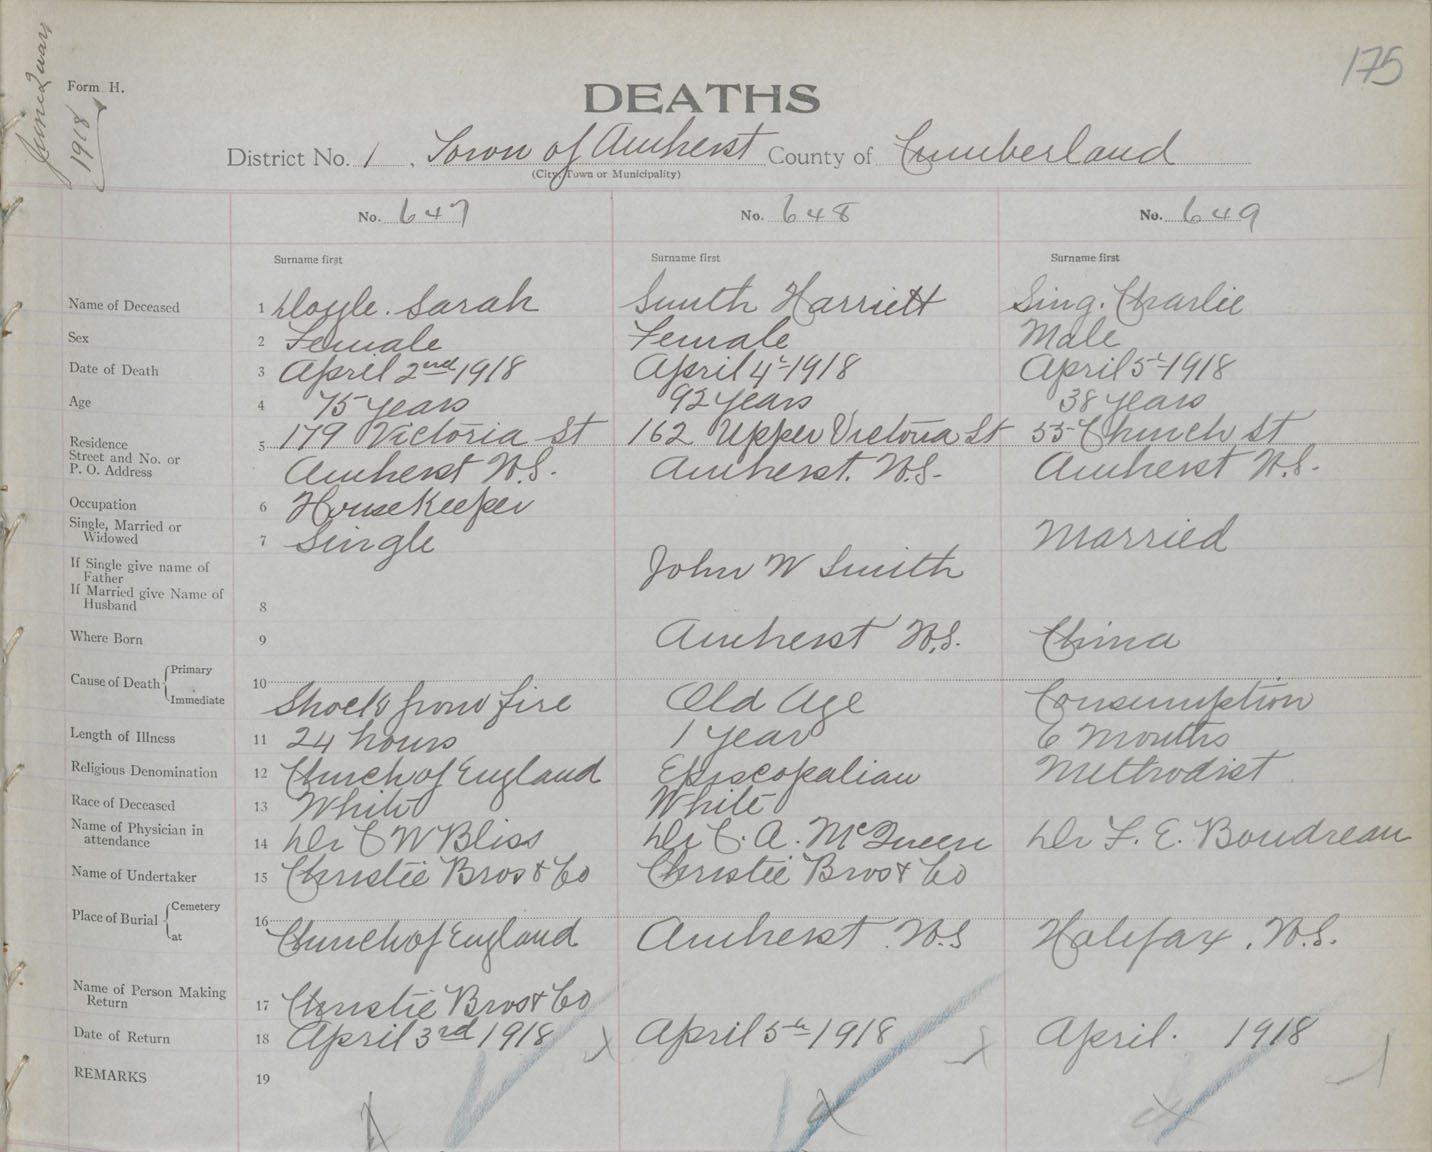 175
June 2 wars
1918
Form H.
DEATHS
District No. 1, Town of Amherst County of Cumberland
(City, Town or Municipality)
No. 647 No. 648 No. 649
Surname first Surname first Surname first
Name of Deceased 1 Doyle. Sarah Smith Harriett Sing. Charlie
Sex 2 Female Female Male
Date of Death 3 April 2nd 1918 April 4t 1918 April 5t 1918
Age 4 75 years 92 years 38 years
Residence 5 179 Victoria St 162 Upper Victoria St 55 Church St
Street and No. or
P. O. Address Amherst N.S. Amherst. N.S. Amherst N.S.
Occupation 6 HouseKeeper
Single, Married or
Widowed 7 Single Married
If Single give name of
Father John W Smith
If Married give Name of
Husband 8
Where Born 9 Amherst N.S. China
Cause of Death Primary 10
Immediate Shock from fire Old Age Consumption
Length of Illness 11 24 hours 1 year 6 Months
Religious Denomination 12 Church of England Episcopalian Methodist
Race of Deceased 13 White White
Name of Physician in
attendance 14 Dr C W Bliss Dr C. A. McQueen Dr F. E. Boudreau
Name of Undertaker 15 Christie Bros & Co Christie Bros & Co
Place of Burial Cemetery 16
at Church of England Amherst N.S Halifax, N.S.
Name of Person Making
Return 17 Christie Bros & Co
Date of Return 18 April 3rd 1918 April 5th 1918 April. 1918
REMARKS 19